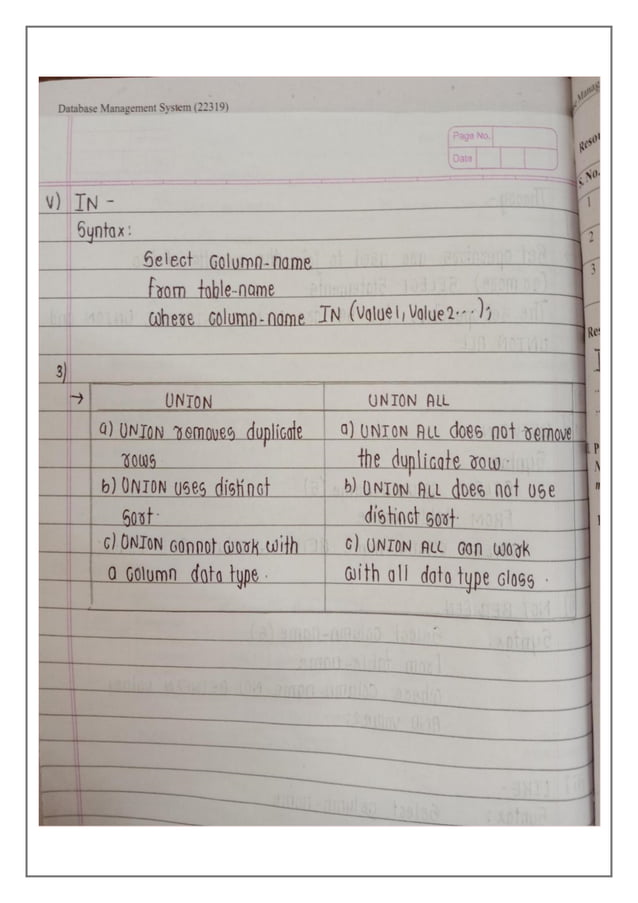 Database Management System (22319)
Page No.
Date
v) IN -
Syntax:
Select column-name
from table-name
where column-name IN (Value1, Value2...);
3)
→ UNION
a) UNION removes duplicate
rows
b) UNION uses distinct
sort.
c) UNION cannot work with
a column data type.
UNION ALL
a) UNION ALL does not remove
the duplicate row.
b) UNION ALL does not use
distinct sort.
c) UNION ALL can work
with all data type class.
S. No.
1
2
3